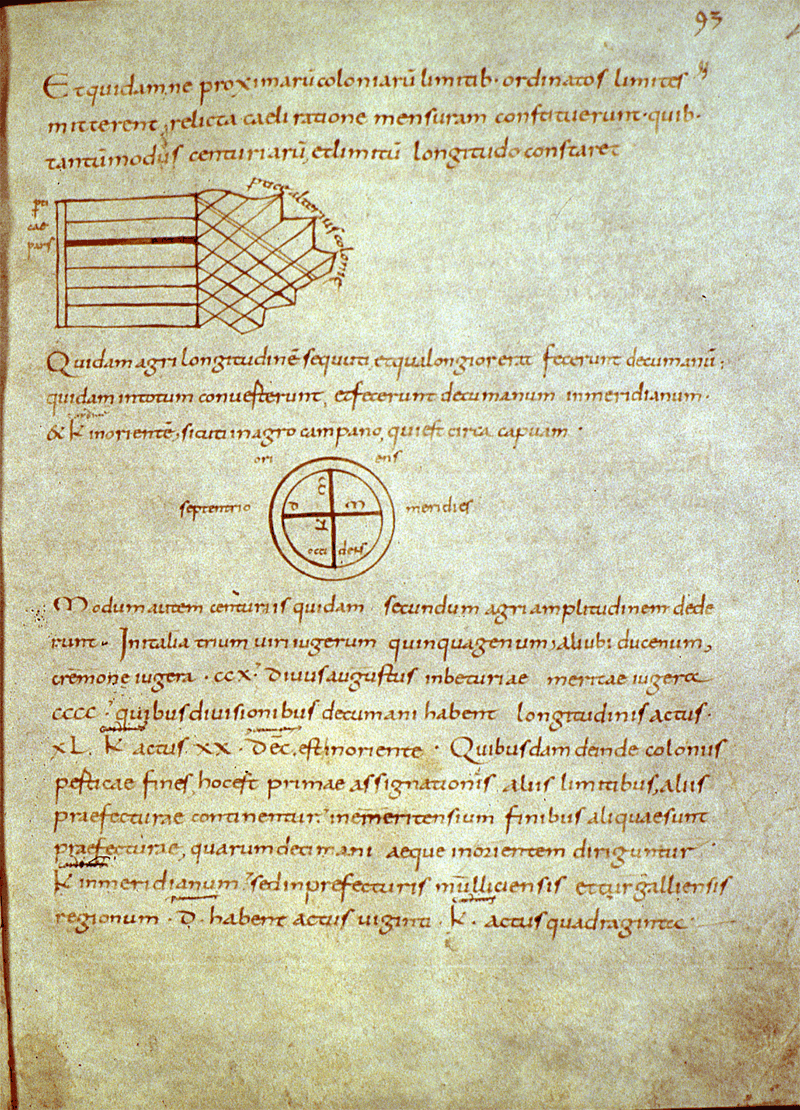 93
Et quidam, ne proximarū coloniarū limitib· ordinatos limites
mitterent, relicta caeli ratione mensuram constituerunt· quib·
tantū modus centuriarū, et limitū longitudo constaret
pti
cae
pars
parte alterius colonie
Quidam agri longitudinē secuti, et qua longior erat fecerunt decumanū;
quidam in totum converterunt, et fecerunt decumanum in meridianum·
cardine
& K in orientē, sicuti in agro campano, qui est circa capuam·
ori ens
septentrio meridies
D M
K
occi dens
Modum autem centuriis quidam secundum agri amplitudinem dede
runt· In italia trium uiri iugerum quinquagenum, aliubi ducenum,
cremone iugera·ccx· Diuus augustus in beturiae meritae iugera
cccc· quibus divisionibus decumani habent longitudinis actus·
xL. K actus xx· Dēc. est in oriente· Quibusdam deinde colonus
pesticae fines, hoc est primae assignationis aliis limitibus, aliis
praefecturae continentur· in emeritensium finibus aliquae sunt
praefecturae, quarum decimani aeque in orientem diriguntur
K in meridianum· sed in prefecturis mulliciensis et turgalliensis
regionum· D. habent actus uiginti· K. actus quadraginta